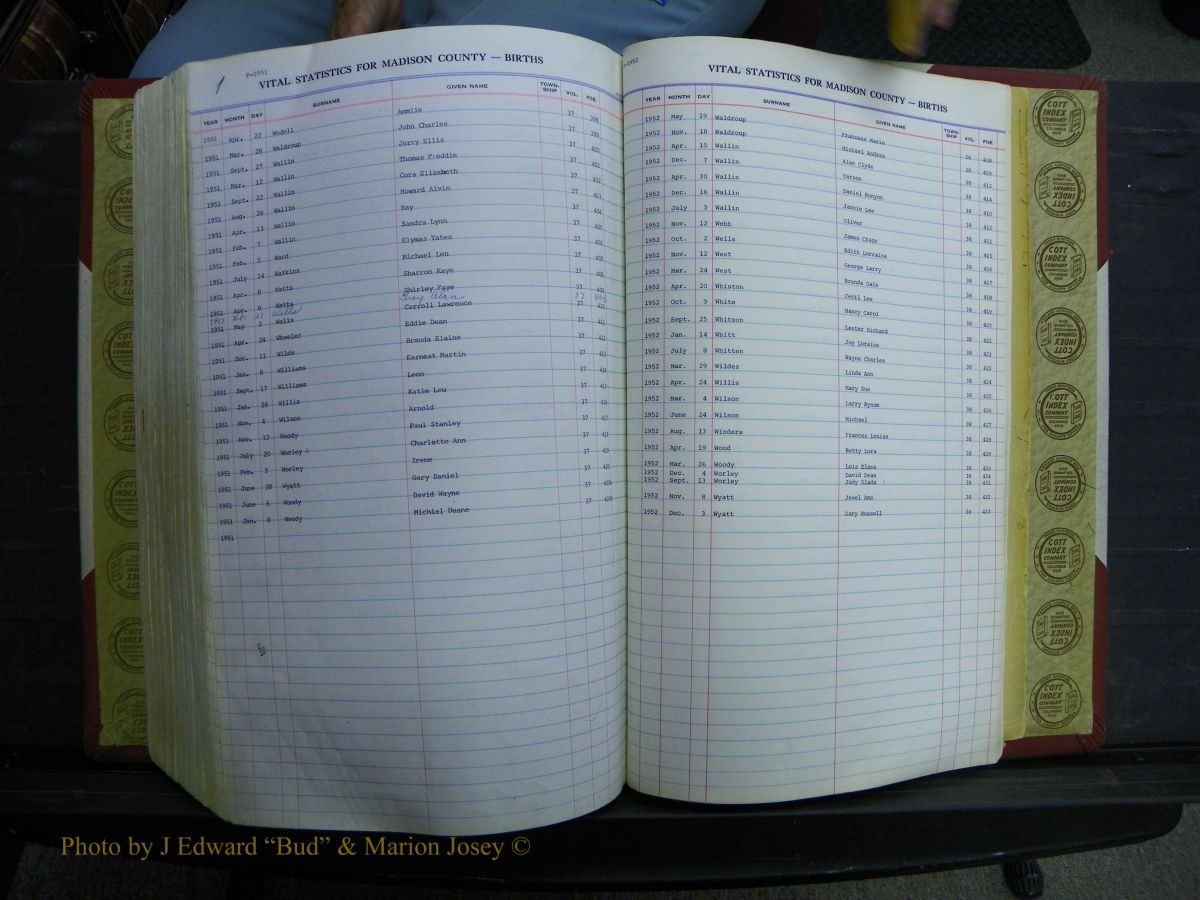 P-1951
VITAL STATISTICS FOR MADISON COUNTY — BIRTHS
YEAR MONTH DAY SURNAME GIVEN NAME TOWN-SHIP VOL. PGE.
1951 Apr. 22 Wadell Ammlie 37 398
1951 Mar. 28 Waldroup John Charles 37 399
1951 Sept. 27 Wallin Jerry Ellis 37 400
1951 Mar. 12 Wallin Thomas Freddie 37 401
1951 Sept. 22 Wallin Cora Elizabeth 37 402
1951 Aug. 24 Wallin Howard Alvin 37 403
1951 Apr. 13 Wallin Ray 37 404
1951 Feb. 7 Wallin Sandra Lynn 37 405
1951 Feb. 5 Ward Elymas Yates 37 406
1951 July 14 Watkins Michael Len 37 407
1951 Apr. 8 Watts Sharron Kaye 37 408
1951 Apr. 8 Watts Shirley Faye 37 409
1951 Feb. 21 Wells Alan 37 409½
1951 May 2 Wells Carroll Lawrence 37 410
1951 Apr. 24 Wheeler Eddie Dean 37 411
1951 Dec. 11 Wilde Brenda Elaine 37 412
1951 Jan. 8 Williams Earnest Martin 37 413
1951 Sept. 17 Williams Leon 37 414
1951 Jan. 26 Willis Katie Lou 37 415
1951 Nov. 4 Wilson Arnold 37 416
1951 Nov. 12 Woody Paul Stanley 37 417
1951 July 20 Worley Charlotte Ann 37 418
1951 Feb. 3 Worley Irene 37 419
1951 June 28 Wyatt Gary Daniel 37 420
1951 June 6 Woody David Wayne 37 420A
1951 Jan. 8 Woody Michial Duane 37 420B
1951
-1952
VITAL STATISTICS FOR MADISON COUNTY — BIRTHS
YEAR MONTH DAY SURNAME GIVEN NAME TOWN-SHIP VOL. PGE.
1952 May 19 Waldroup Frances Marie 38 408
1952 Nov. 18 Waldroup Michael Andrew 38 409
1952 Apr. 15 Wallin Alan Clyde 38 412
1952 Dec. 7 Wallin Carson 38 414
1952 Apr. 30 Wallin Daniel Bunyon 38 410
1952 Dec. 16 Wallin Jannie Lee 38 413
1952 July 3 Wallin Oliver 38 411
1952 Nov. 12 Webb James Crage 38 415
1952 Oct. 2 Wells Edith Lorraine 38 416
1952 Nov. 12 West George Larry 38 417
1952 Mar. 24 West Brenda Gale 38 418
1952 Apr. 20 Whiston Cecil Lee 38 419
1952 Oct. 9 White Nancy Carol 38 420
1952 Sept. 25 Whitson Lester Richard 38 421
1952 Jan. 14 Whitt Joy Loraine 38 422
1952 July 8 Whitten Wayne Charles 38 423
1952 Mar. 29 Wildes Linda Ann 38 424
1952 Apr. 24 Willis Mary Sue 38 425
1952 Mar. 4 Wilson Larry Bynum 38 426
1952 June 24 Wilson Michael 38 427
1952 Aug. 13 Winders Frances Louise 38 428
1952 Apr. 19 Wood Betty Lora 38 429
1952 Mar. 26 Woody Lois Elane 38 430
1952 Dec. 4 Worley David Dean 38 434
1952 Sept. 13 Worley Judy Glada 38 431
1952 Nov. 8 Wyatt Jewel Ame 38 432
1952 Dec. 3 Wyatt Gary Russell 38 433
COTT INDEX COMPANY COLUMBUS OHIO
Photo by J Edward “Bud” & Marion Josey ©